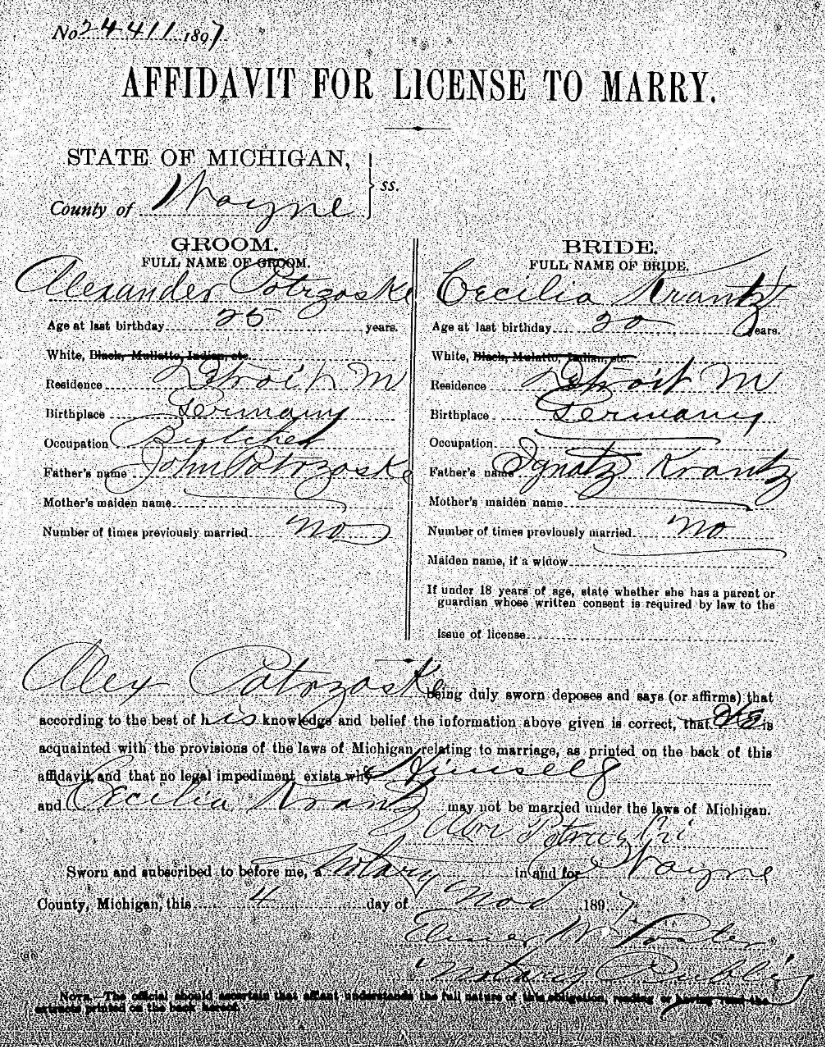 No 24411 1897
AFFIDAVIT FOR LICENSE TO MARRY.
STATE OF MICHIGAN,
County of Wayne } ss.
GROOM.
FULL NAME OF GROOM.
Alexander Potrzaske
Age at last birthday 25 years.
White, Black, Mullatto, Indian, etc.
Residence Detroit M
Birthplace Germany
Occupation Butcher
Father's name John Potrzaske
Mother's maiden name
Number of times previously married no
BRIDE.
FULL NAME OF BRIDE.
Cecilia Krantz
Age at last birthday 20 years.
White, Black, Mulatto, Indian, etc.
Residence Detroit M
Birthplace Germany
Occupation
Father's name Ignatz Krantz
Mother's maiden name
Number of times previously married no
Maiden name, if a widow
If under 18 years of age, state whether she has a parent or
guardian whose written consent is required by law to the
issue of license
Alex Potrzaske being duly sworn deposes and says (or affirms) that
according to the best of his knowledge and belief the information above given is correct, that he is
acquainted with the provisions of the laws of Michigan relating to marriage, as printed on the back of this
affidavit, and that no legal impediment exists why himself
and Cecilia Krantz may not be married under the laws of Michigan.
Sworn and subscribed to before me, a Notary in and for Wayne
County, Michigan, this 4 day of Nov 1897
Elmer W. Porter
Notary Public
NOTE.—The official should ascertain that affiant understands the full nature of this obligation, reading or having read the
extracts printed on the back hereof.